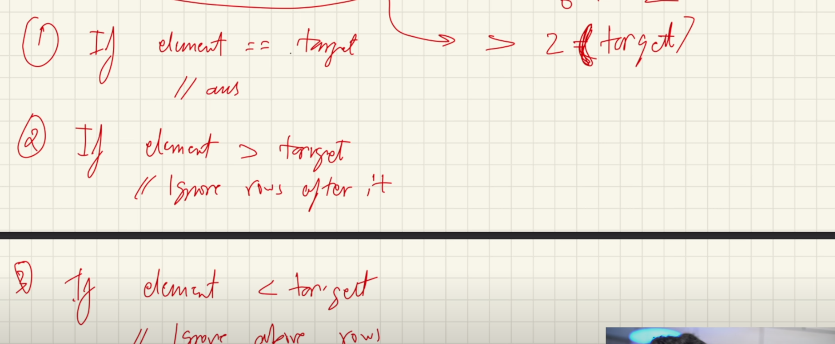 ① If element == target > 2 (target)
// ans
② If element > target
// Ignore rows after it
3 If element < target
// Ignore above rows